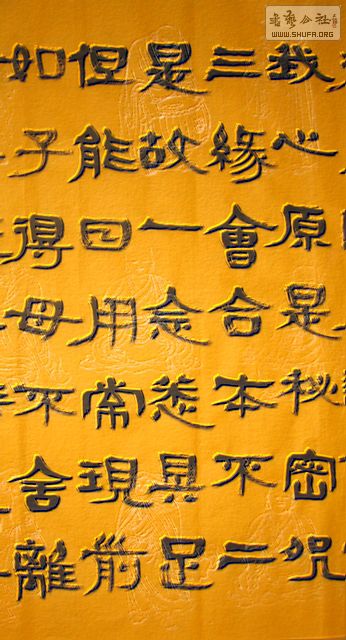 我心原是秘密咒
三緣會合本不二
是故一念悉具足
但能日用常現前
如子得母不舍離
書藝公社
WWW.SHUFA.ORG